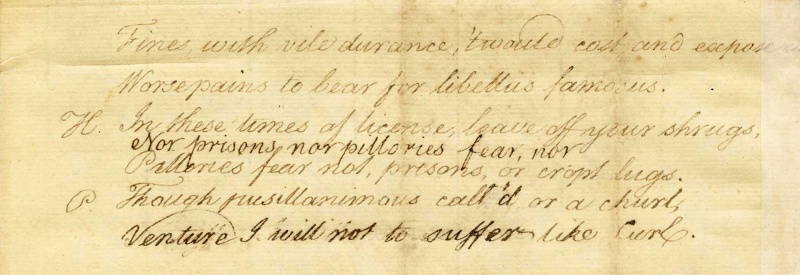 Fines, with vile durance, 'twould cost and expose
Worse pains to bear for libellus famosus.
H. In these times of license, leave off your shrugs,
Nor prisons nor pillories fear, nor
Pillories fear not, prisons, or cropt lugs.
P. Though pusillanimous call'd, or a churl,
Venture I will not to suffer like Curl.